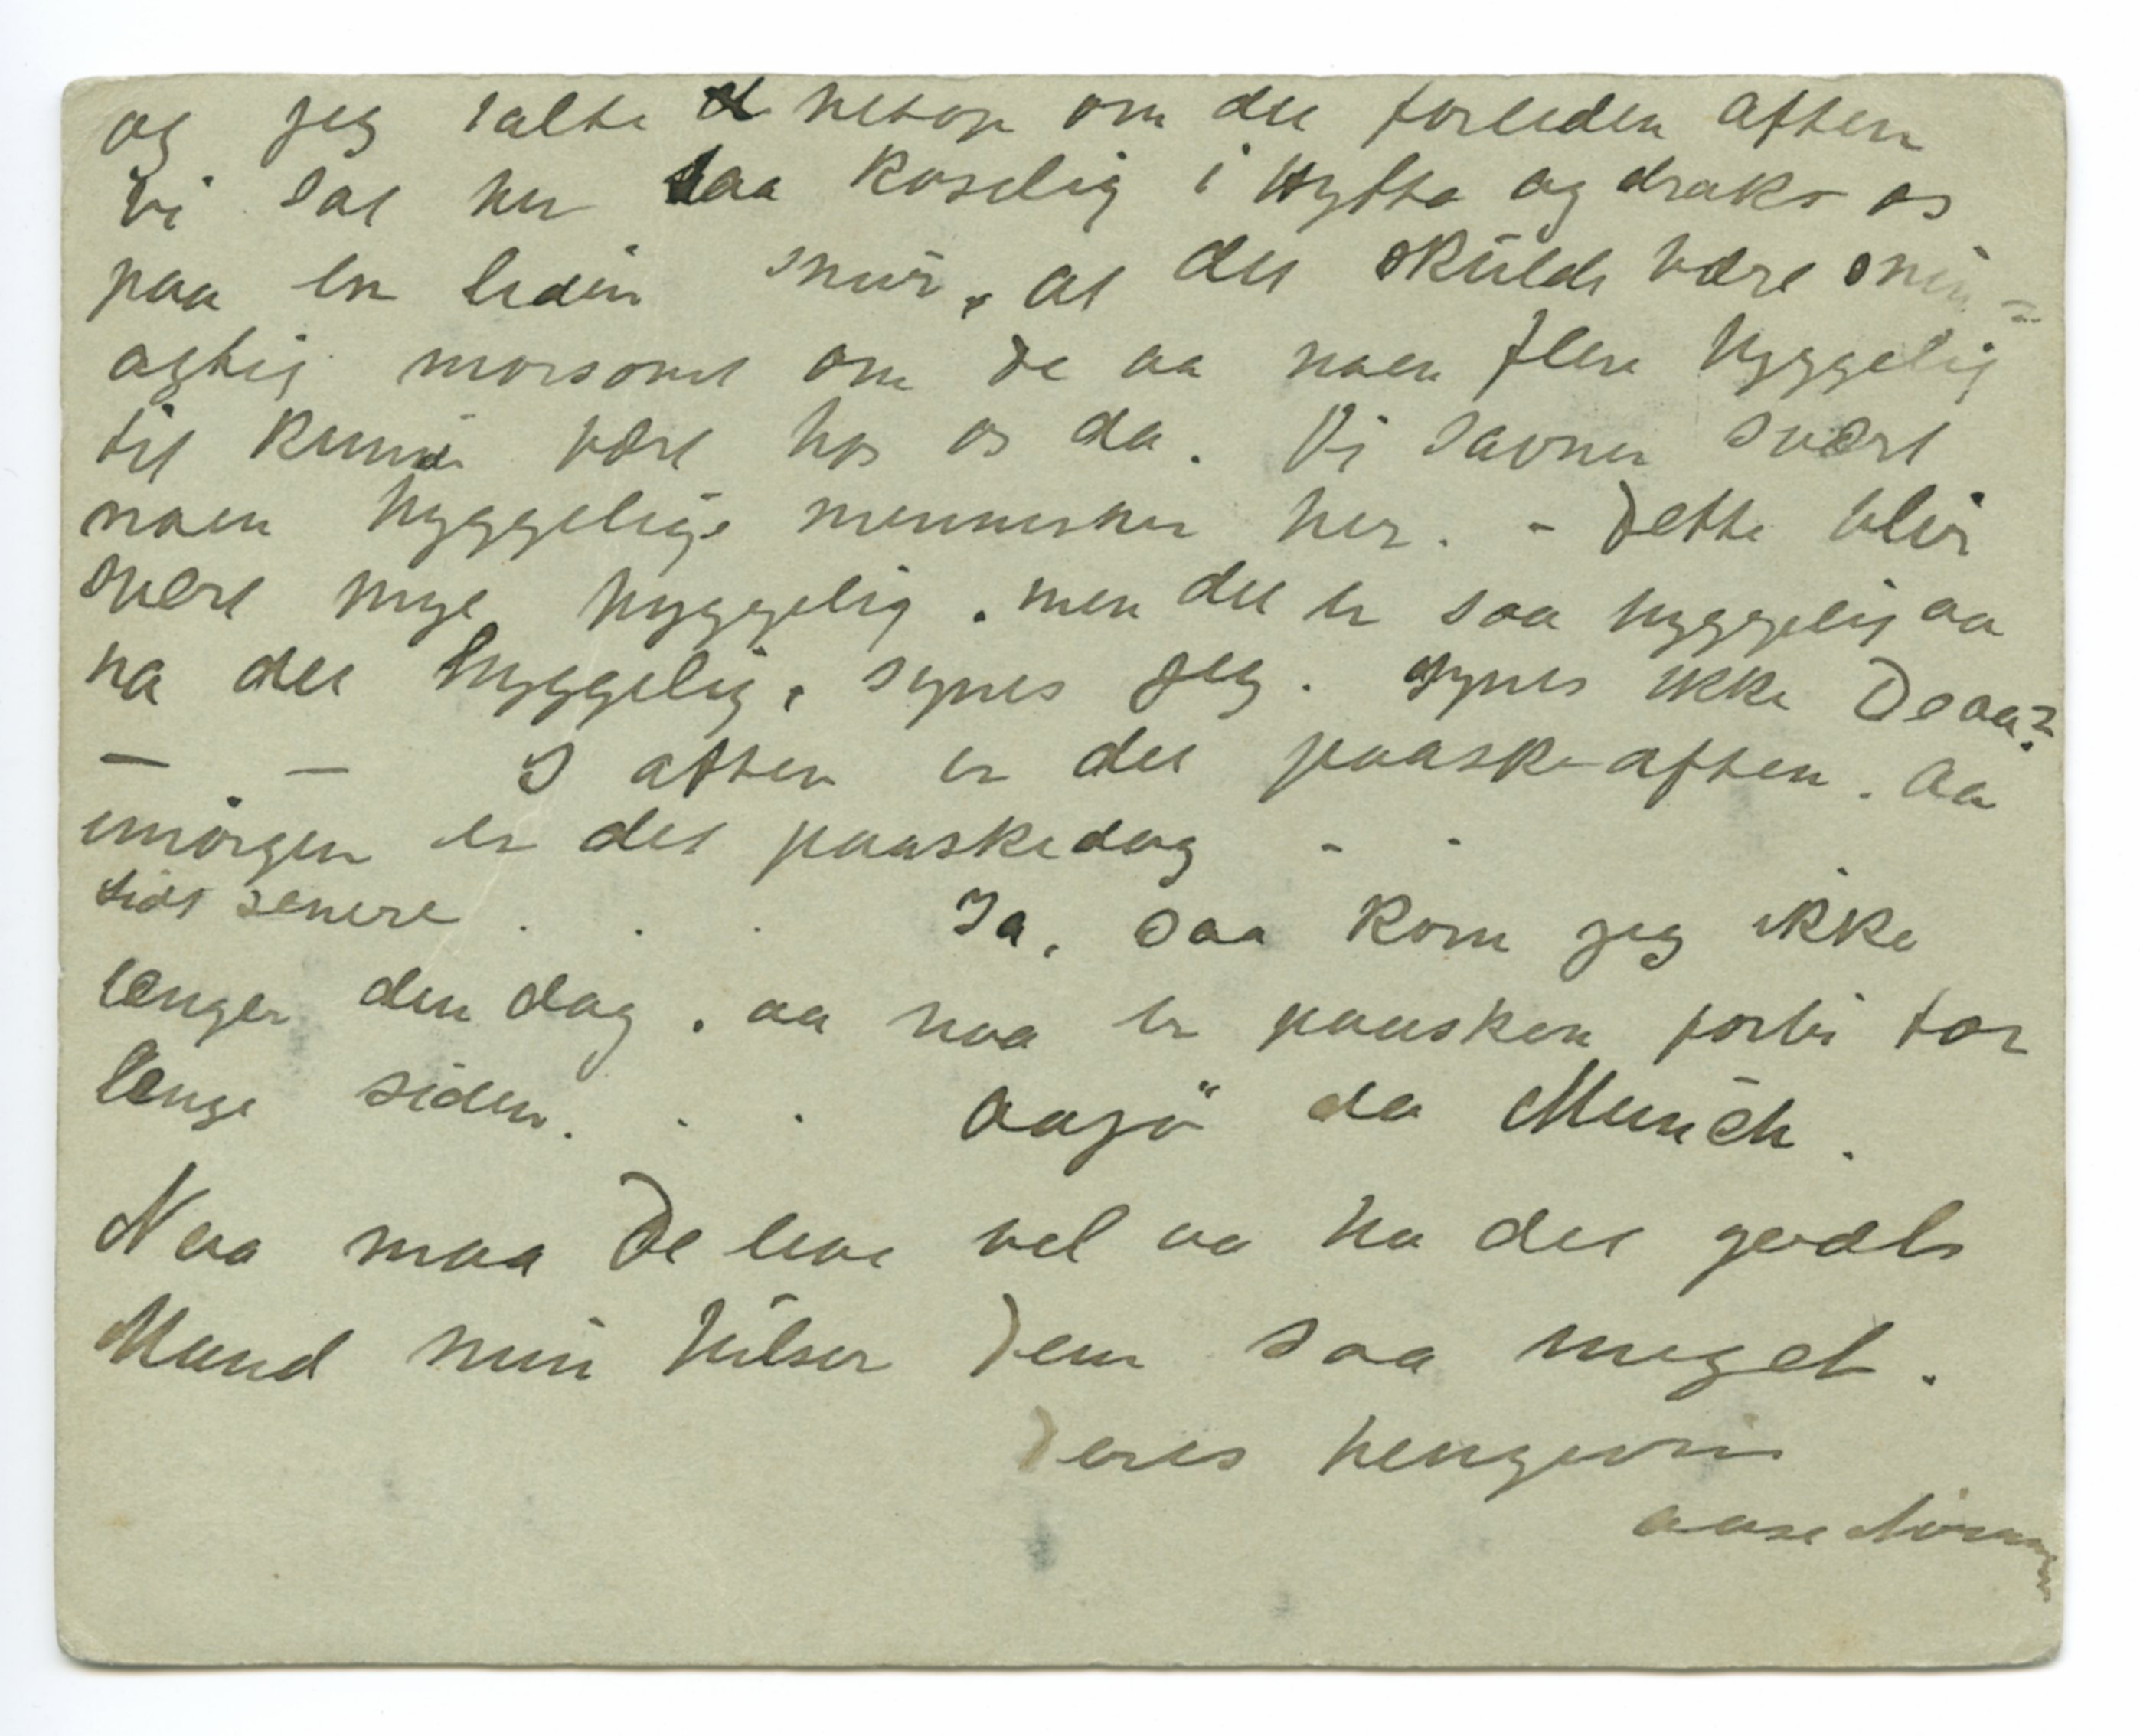 og jeg talte netop om det forleden aften
vi sat her saa koselig i Hytta og drako os
paa en liden snur, at det skulde være snur=
agtig morsomt om De aa noen flere hyggelig
til kunde være hos os da. Vi savner svært
noen hyggelige mennesker her. - Dette blir
svært mye hyggelig. men det er saa hyggelig aa
ha det hyggelig, synes jeg. synes ikke De aa?
— — I aften er det paaske-aften. Aa
imorgen er det paaskedag - -
lidt senere . . . Ja, saa kom jeg ikke
længer den dag. aa naa er paasken forbi for
længe siden. . . Aajö da Munch.
Naa maa De leve vel aa ha det godt
Mand min hilser Dem saa meget.
Deres hengivne
Aase